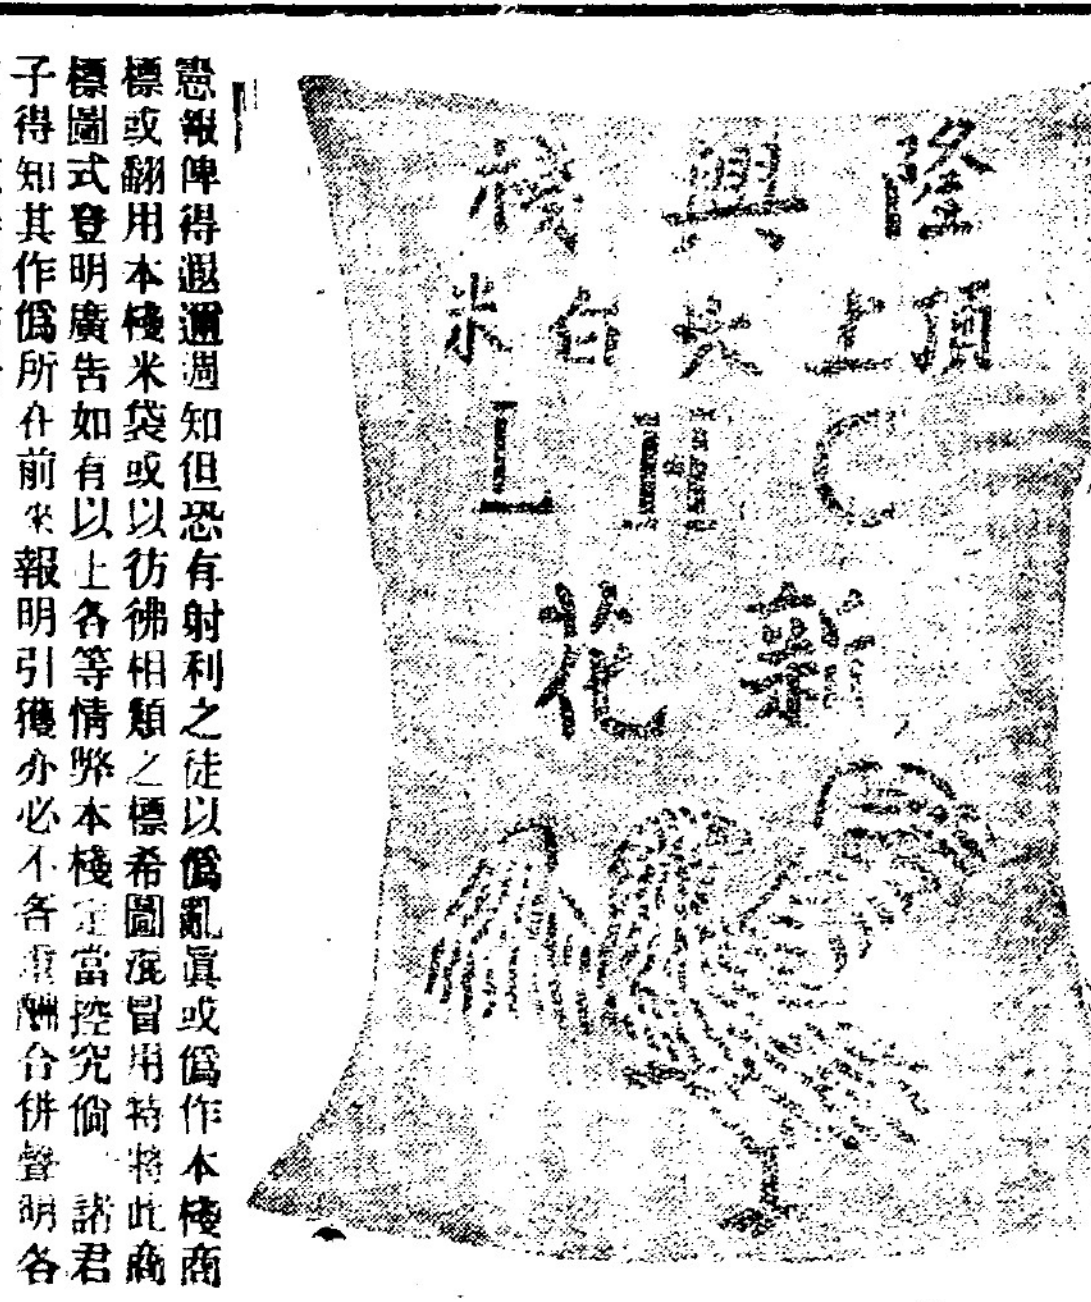 隆興棧
頂上尖白米
CHL
新花
憲報俾得遐邇週知但恐有射利之徒以僞亂眞或僞作本棧商
標或翻用本棧米袋或以彷彿相類之標希圖混冒用特將此商
標圖式登明廣告如有以上各等情弊本棧定當控究倘 諸君
子得知其作僞所在前來報明引獲亦必不吝重酬合併聲明各